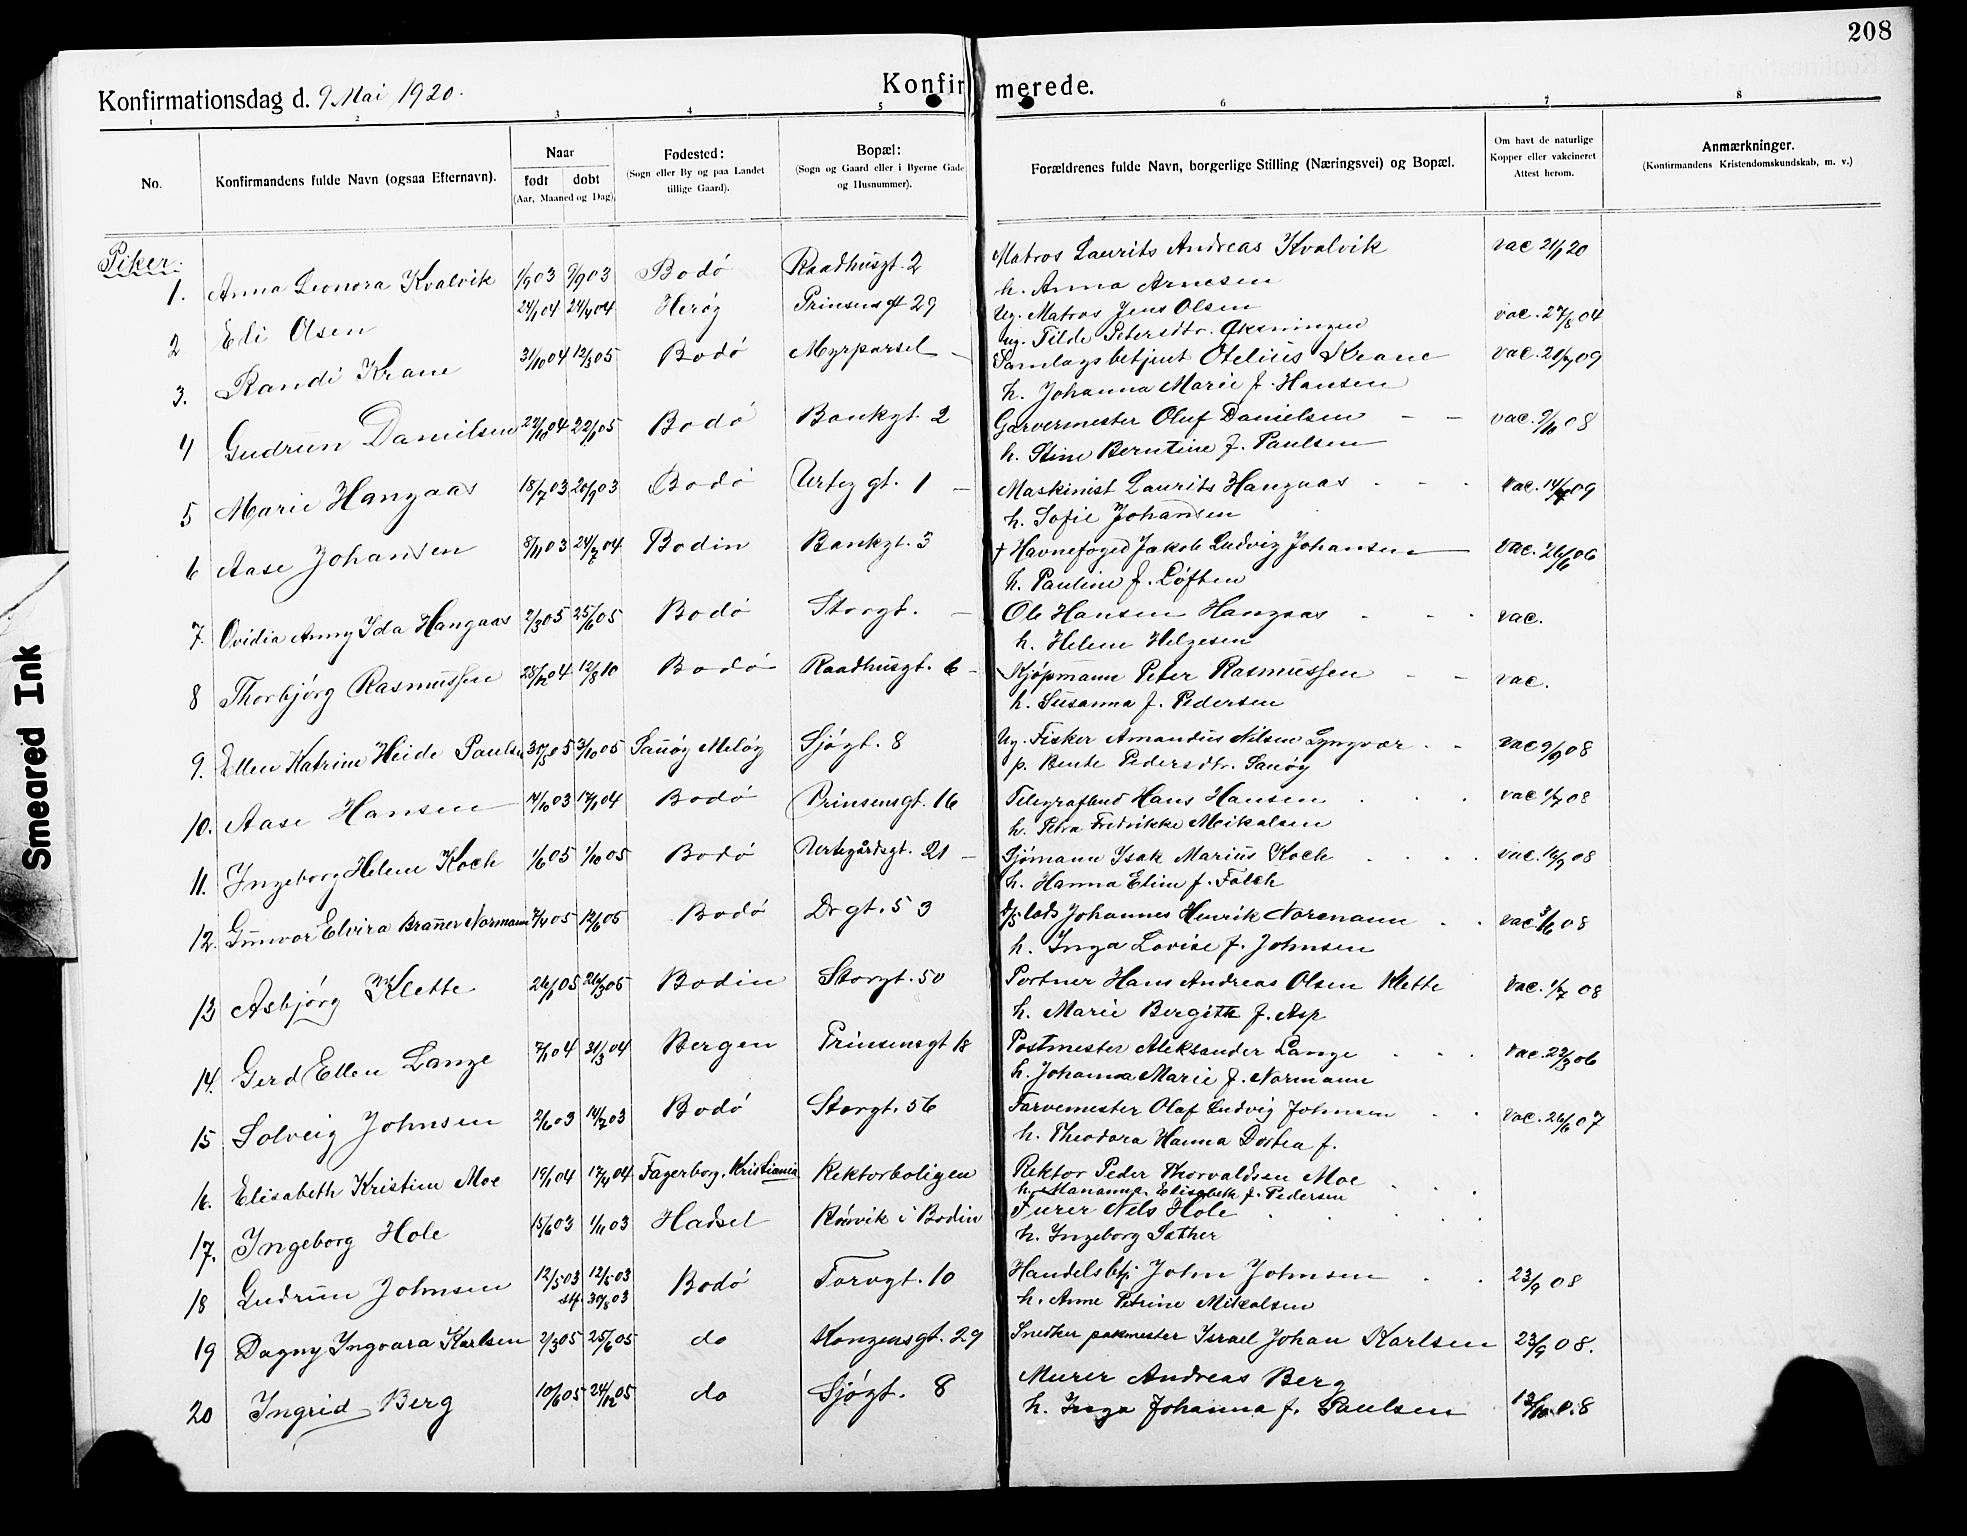 208
Konfirmationsdag d. 9 Mai 1920.
Konfirmerede.
1 2 3 4 5 6 7 8
No.
Konfirmandens fulde Navn (ogsaa Efternavn).
Naar
født døbt
(Aar, Maaned og Dag).
Fødested:
(Sogn eller By og paa Landet
tillige Gaard).
Bopæl:
(Sogn og Gaard eller i Byerne Gade
og Husnummer).
Forældrenes fulde Navn, borgerlige Stilling (Næringsvei) og Bopæl.
Om havt de naturlige
Kopper eller vakcineret
Attest herom.
Anmærkninger.
(Konfirmandens Kristendomskundskab, m. v.)
Piker:
1. Anna Leonora Kvalvik 1/9 03 9/9 03 Bodó Raadhusgt. 2 Matros Laurits Andreas Kvalvik vac 21/1 20
h. Anna Arnesen
2 Eli Olsen 24/1 04 24/4 04 Herøy Prinsensgt 29 Ug. Matros Jens Olsen vac. 27/8 04
ug. Tilde Petersdtr.
3. Randi Krane 31/10 04 12/3 05 Bodó Myrparsel Samlagsbetjent Otelius Krane vac.
h. Johanna Marie f. Hansen
4 Gudrun Danielsen 22/1 05 Bodó Bankgt. 2 Garvermester Oluf Danielsen vac. 9/10 08
h. Stine Berntine f. Paulsen
5 Marie Hangaas 18/7 03 20/9 03 Bodó Urteggt. 1 Maskinist Laurits Hangaas vac. 09
h. Sofie Johansen
6 Aase Johansen 8/11 03 24/7 04 Bodin Bankgt. 3 † Havnefoged Jakob Ludvig Johansen vac. 26/6 06
h. Pauline f. Løften
7. Ovidia Anny Ida Hangaas 2/3 05 25/6 05 Bodó Storgt. Ole Hansen Hangaas vac.
h. Helene Helgesen
8 Thorbjørg Rasmussen 28/12 04 12/8 10 Bodó Raadhusgt. 6 Kjøpmann Peter Rasmussen vac.
h. Susanna f. Pedersen
9. Ellen Katrine Heide Paulsen 31/5 05 3/10 05 Sauøy Meløy Sjógt. 8 Ug. Fisker Amandus Nilsen Lyngvær vac 9/9 08
p. Bente Pedersdtr. Sauøy
10. Aase Hansen 14/10 03 17/1 04 Bodó Prinsensgt. 16 Telegrafbud Hans Hansen vac 1/7 08
h. Petra Fredrikke Mikalsen
11. Ingeborg Helene Koch 1/6 05 1/10 05 Bodó Urtegårdsgt. 21 Sjómann Isak Marius Koch vac. 16/9 08
h. Hanna Eline f. Falch
12. Gunvor Elvira Branner Normann 7/4 05 12/6 05 Bodó Drgt. 53 D/S lods Johannes Henrik Normann vac 3/6 08
h. Inga Lovise f. Johnsen
13 Asbjørg Klette 26/1 05 26/3 05 Bodin Storgt. 50 Portner Hans Andreas Olsen Klette vac. 1/7 08
h. Marie Bergitte f. Asp
14. Gerd Ellen Lange 7/1 04 31/3 04 Bergen Prinsensgt 18 Postmester Aleksander Lange vac. 29/3 06
h. Johanna Marie f. Normann
15 Solveig Johnsen 2/6 03 14/7 03 Bodó Storgt. 56 Farvemester Olaf Ludvig Johnsen vac. 26/6 07
h. Theodora Hanna Dortea f.
16. Elisabeth Kristine Moe 19/1 04 17/4 04 Fagerborg, Kristiania Rektorboligen Rektor Peder Thorvaldsen Moe
h. Marianna Elisabeth f. Pedersen
17. Ingeborg Hole 15/6 03 1/11 03 Hadsel Rónvik i Bodin Furer Nels Hole
h. Ingeborg Sather
18 Gudrun Johnsen 12/5 03 12/5 03 Bodó Torvgt. 10 Handelsbtj. John Johnsen 23/9 08
stf. 30/8 03 h. Anne Petrine Mikalsen
19 Dagny Ingvara Karlsen 2/3 05 25/6 05 do Kongensgt. 29 Snedker pakmester Israel Johan Karlsen 23/9 08.
20 Ingrid Berg 10/6 05 24/12 05 do Sjógt. 8 Murer Andreas Berg
h. Inga Johanna f. Paulsen 13/10 08
Smeared Ink